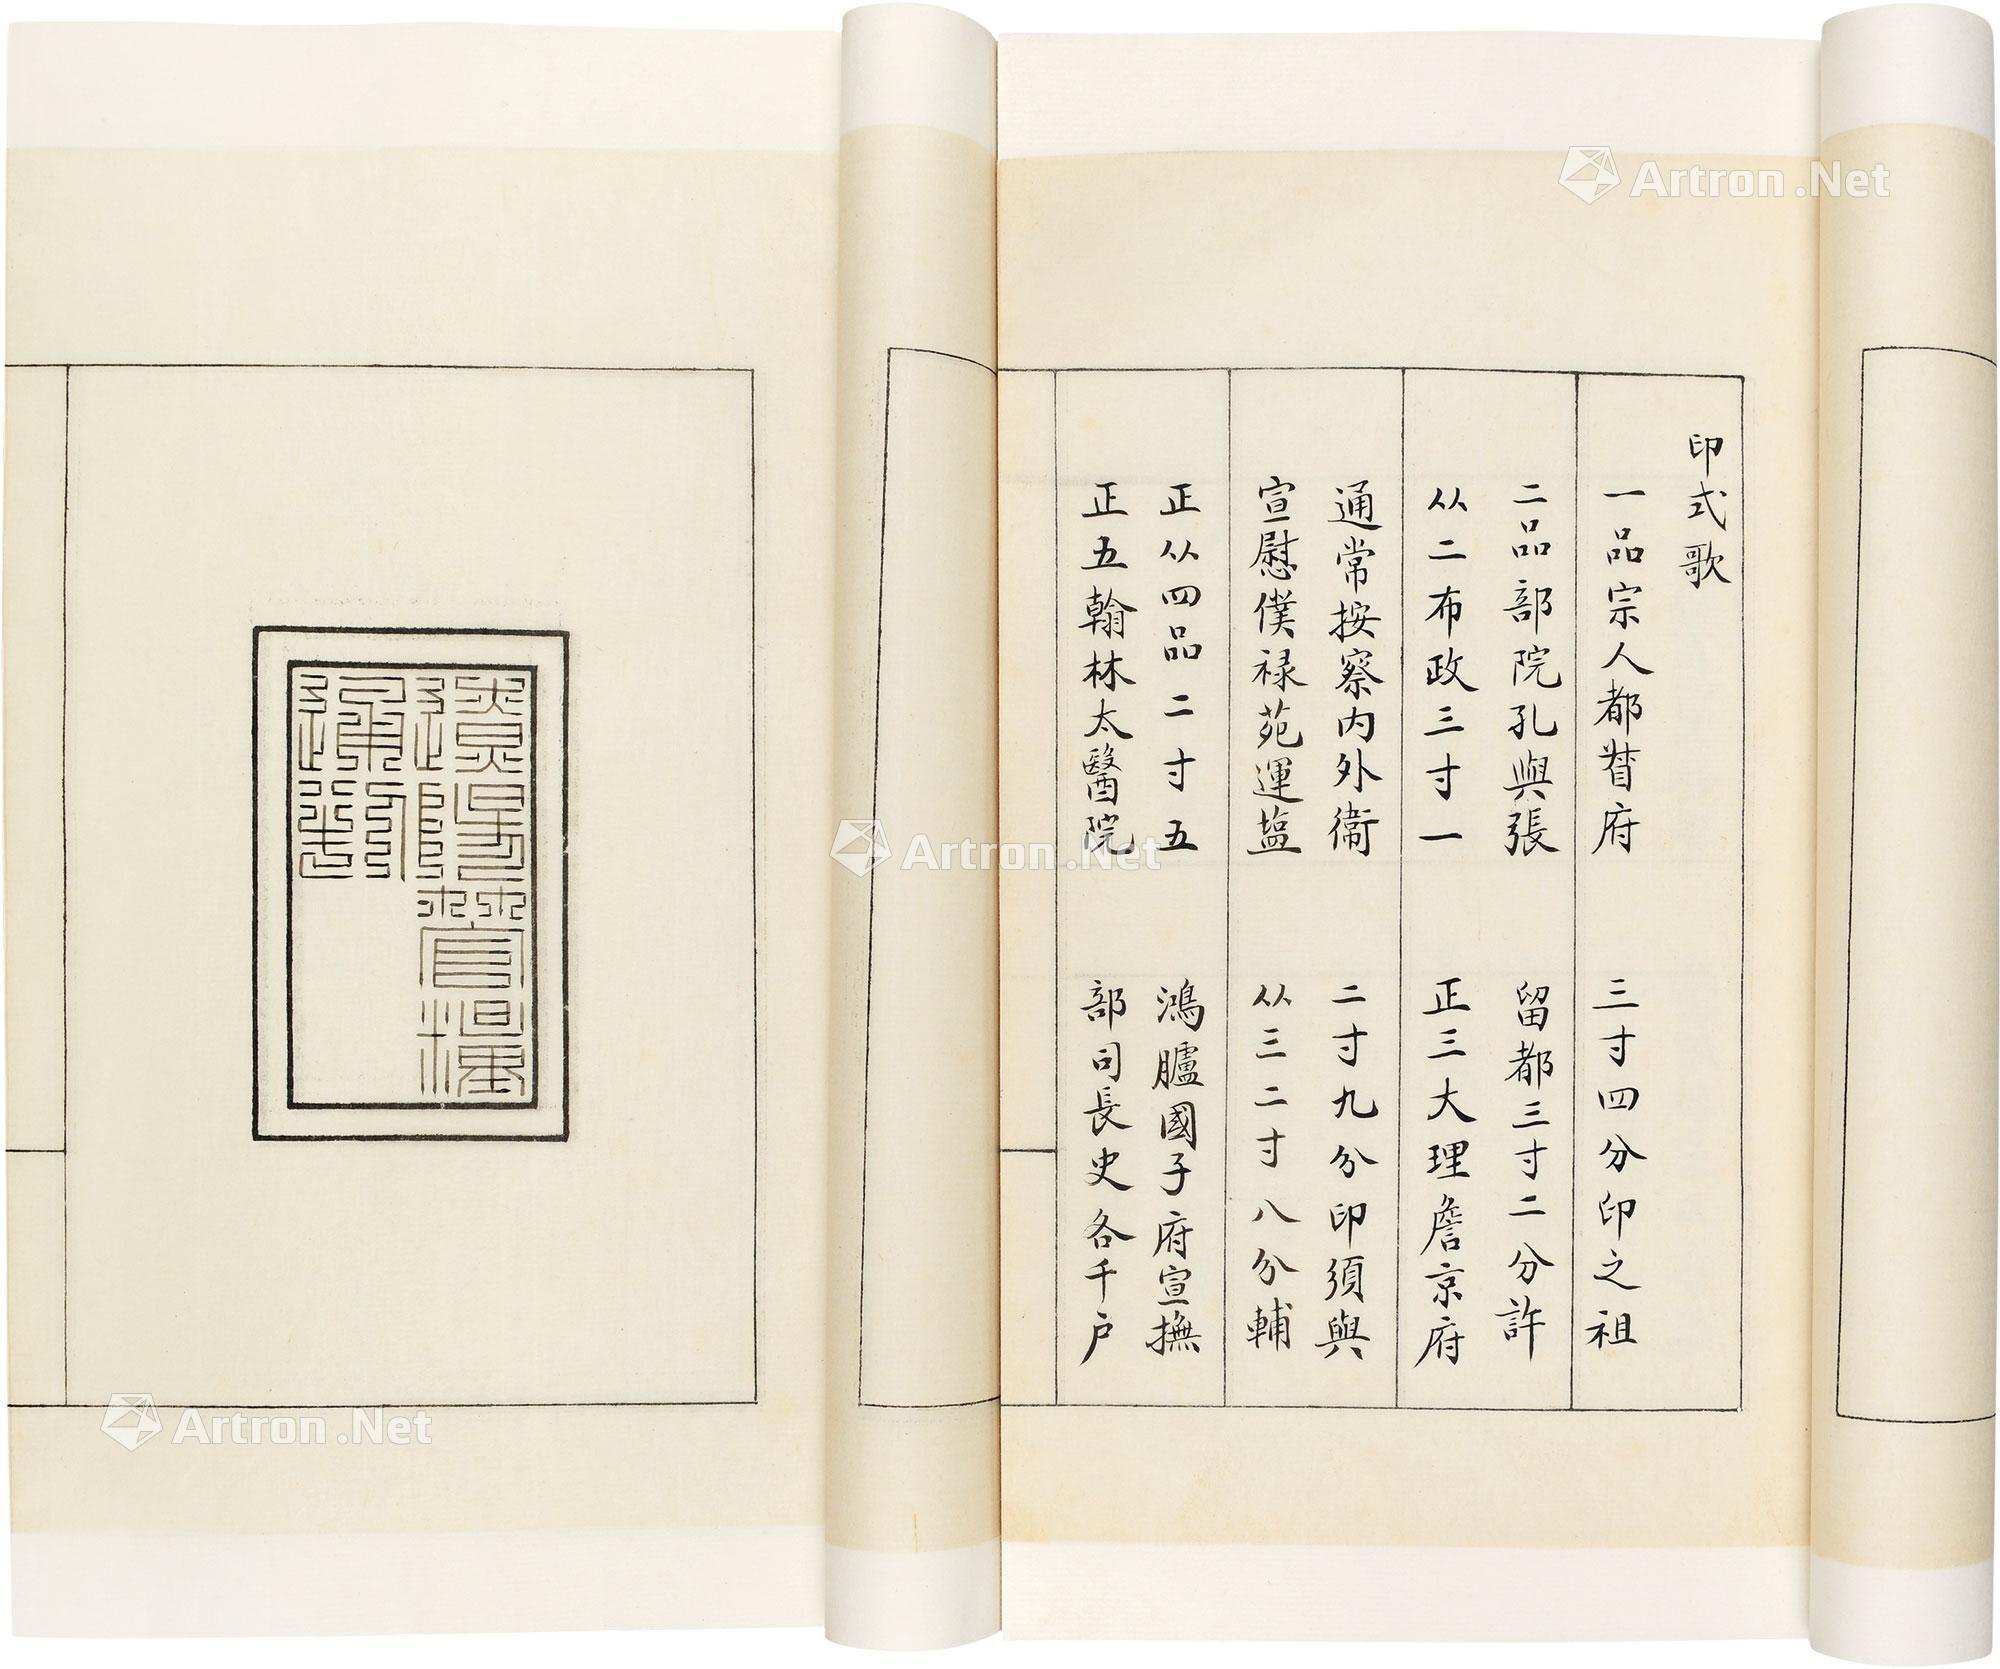 印式歌
一品宗人都督府 三寸四分印之祖
二品部院孔與張 留都三寸二分許
从二布政三寸一 正三大理詹京府
通常按察內外衞 二寸九分印須與
宣慰僕禄苑運塩 从三二寸八分輔
正从四品二寸五 鴻臚國子府宣撫
正五翰林太醫院 部司長史各千户
Artron.Net
Artron.Net
Artron.Net